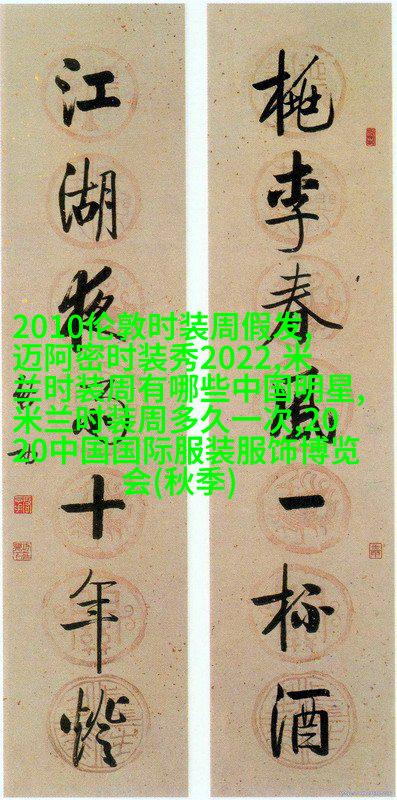 桃李春風一杯酒
江湖夜雨十年燈
2010伦敦时装周假发,
迈阿密时装秀2022,米
兰时装周有哪些中国明星,
米兰时装周多久一次,20
20中国国际服装服饰博览
会(秋季)